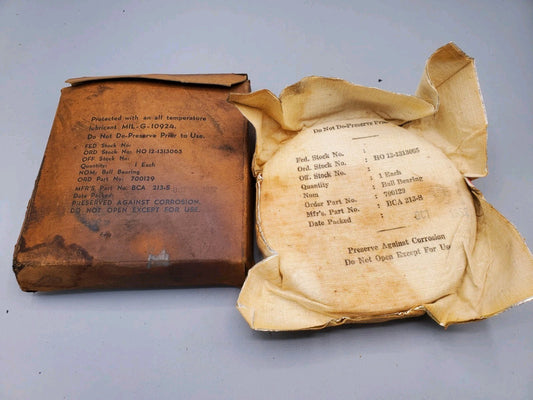 Protected with an all temperature
lubricant MIL-G-10924.
Do Not De-Preserve Prior to Use.
FED Stock No.
ORD Stock No: HO 12-1313065
OFF. Stock No:
Quantity: 1 Each
NOM: Ball Bearing
ORD Part No: 700129
MFR'S. Part No: BCA 213-S
Date Packed
PRESERVED AGAINST CORROSION.
DO NOT OPEN EXCEPT FOR USE.
Do Not De-Preserve Prior
Fed. Stock No. :
Ord. Stock No. : HO 12-1313065
Off. Stock No. :
Quantity : 1 Each
Nom : Ball Bearing
Order Part No. : 700129
Mfr's Part No. : BCA 213-S
Date Packed :
Preserve Against Corrosion
Do Not Open Except For Use